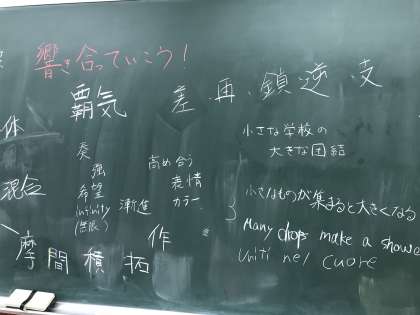 響き合っていこう!
覇気 差 再 鎖 逆 支
体
奏
強
希望
infinity
(無限)
漸進
高め合う
表情
カラー
小さな学校の
大きな団結
混合
小さなものが集まると大きくなる
Many drops make a showe
Uniti nel cuore
作
摩 間 積 拓